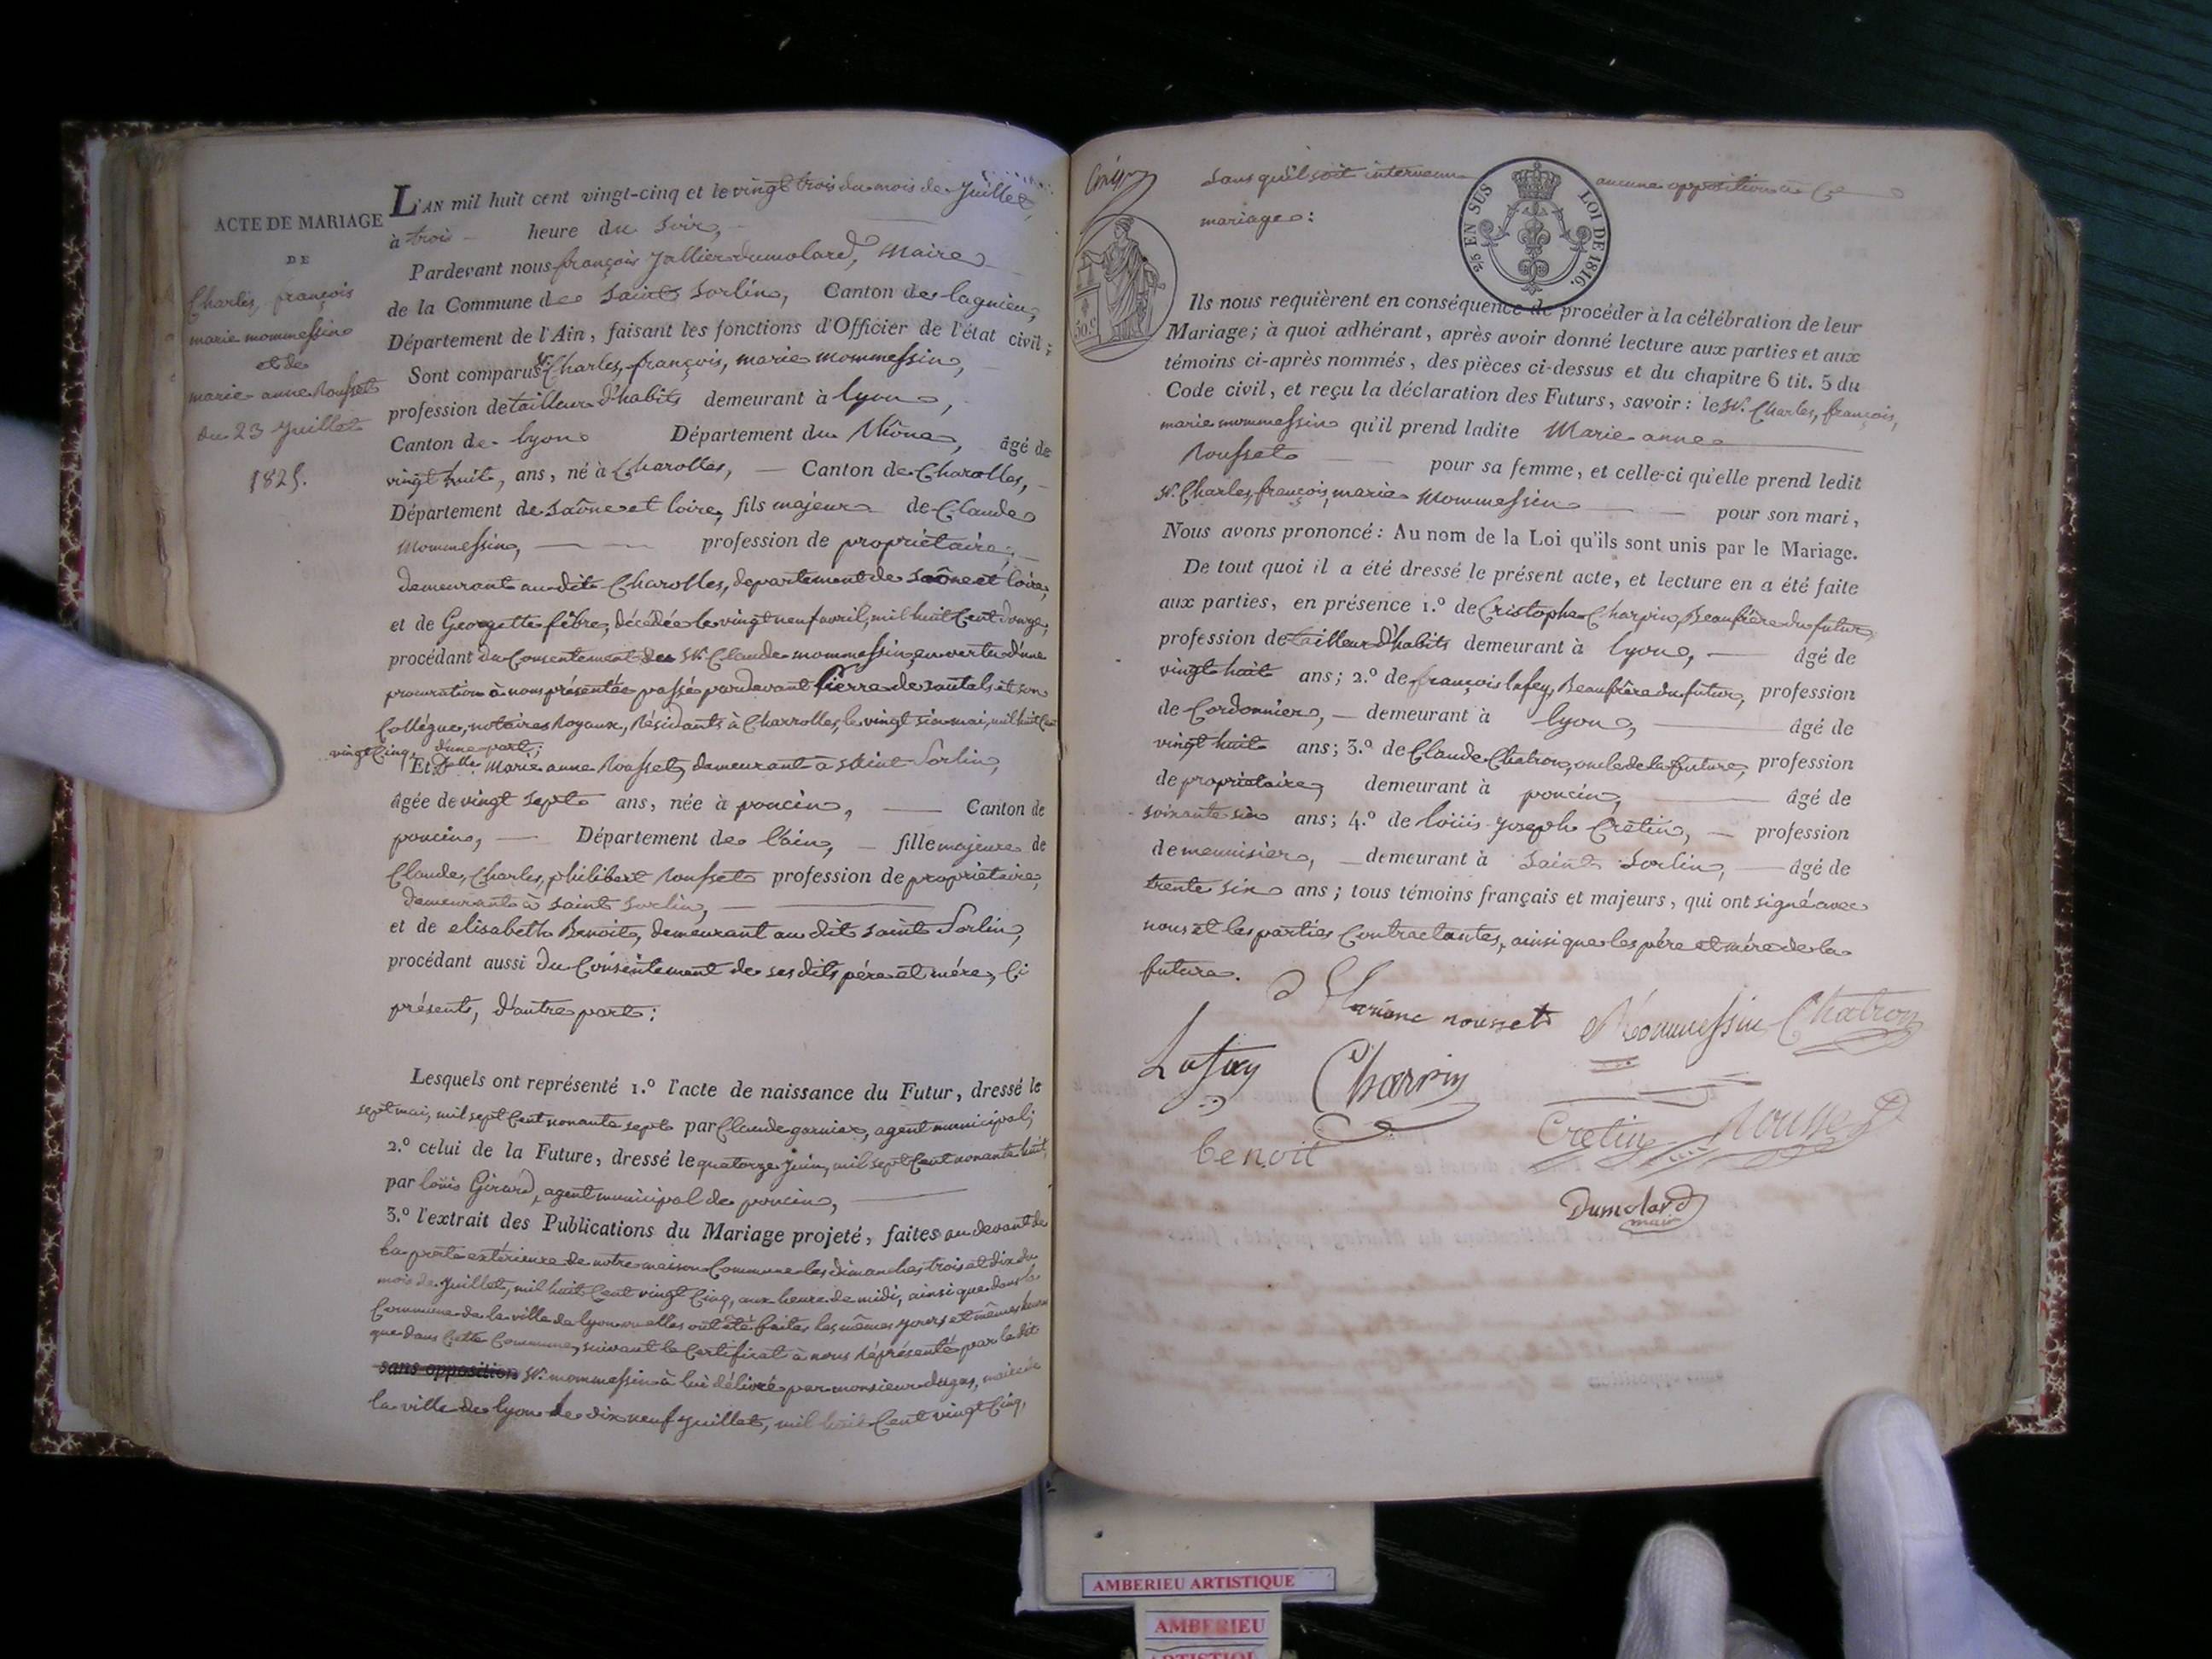 ACTE DE MARIAGE
DE
Charles, françois
marie mommessin
et de
marie anne Rousset
du 23 Juillet
1825.
L'AN mil huit cent vingt-cinq et le vingt trois du mois de Juillet,
à trois heure du soir,
Pardevant nous françois Jallier dumolard, Maire
de la Commune de Saint Sorlin, Canton de lagnieu,
Département de l'Ain, faisant les fonctions d'Officier de l'état civil;
Sont comparus Sr. Charles, françois, marie mommessin,
profession de tailleur d'habits demeurant à lyon,
Canton de lyon Département du Rhône, âgé de
vingt huit, ans, né à Charolles, — Canton de Charolles,
Département de Saône et loire, fils majeur de Claude
Mommessin, — profession de propriétaire,
demeurant audit Charolles, departement de Saône et loire,
et de Georgette fêbre, décédée le vingt neuf avril, mil huit Cent douze,
procédant du Consentement du Sr. Claude mommessin, en vertu d'une
procuration à nous présentée passé pardevant Pierre de et son
Collégue, notaires Royaux, Résidants à Charrolles, le vingt six mai, mil huit Cent
vingt Cinq, d'une part;
Et Delle. Marie anne Rousset, demeurant à Saint Sorlin,
âgée de vingt sept ans, née à poncin, — Canton de
poncin, — Département de l'ain, — fille majeure de
Claude, Charles, philibert Rousset profession de propriétaire,
demeurant à Saint Sorlin, —
et de elisabeth Benoit, demeurant au dit Saint Sorlin,
procédant aussi du Consentement de ses dits pére et mére, Ci
présents, d'autre part:
Lesquels ont représenté 1.º l'acte de naissance du Futur, dressé le
sept mai, mil sept Cent nonante sept par Claude garnier, agent municipal;
2.º celui de la Future, dressé le quatorze Juin, mil sept Cent nonante huit,
par loüis Girard, agent municipal de poncin, —
3.º l'extrait des Publications du Mariage projeté, faites au devant de
la porte extérieure de notre maison Commune les dimanches trois et dix du
mois de Juillet, mil huit Cent vingt Cinq, aux heure de midi, ainsi que dans la
Commune de la ville de lyon ou elles ont été faites les mêmes jours et mêmes heures
que dans Cette Commune, suivant le Certificat à nous Réprésenté par le dit
sans opposition Sr. mommessin à lui délivré par monsieur dugas, maire de
la ville de lyon le dix neuf Juillet, mil huit Cent vingt Cinq,
sans qu'il soit intervenu aucune opposition à Ce
mariage:
2/5 EN SUS LOI DE 1816.
50.c
Ils nous requièrent en conséquence de procéder à la célébration de leur
Mariage; à quoi adhérant, après avoir donné lecture aux parties et aux
témoins ci-après nommés, des pièces ci-dessus et du chapitre 6 tit. 5 du
Code civil, et reçu la déclaration des Futurs, savoir: le Sr. Charles, françois,
marie mommessin qu'il prend ladite Marie anne
Rousset — pour sa femme, et celle-ci qu'elle prend ledit
Sr. Charles, françois, marie Mommessin — pour son mari,
Nous avons prononcé: Au nom de la Loi qu'ils sont unis par le Mariage.
De tout quoi il a été dressé le présent acte, et lecture en a été faite
aux parties, en présence 1.º de Cristophe Charpin, Beaufrère du futur,
profession de tailleur d'habits demeurant à lyon, — âgé de
vingt huit ans; 2.º de françois lafey, Beaufrère du futur, profession
de Cordonnier, — demeurant à lyon, — âgé de
vingt huit ans; 3.º de Claude Chatron, oncle de la future, profession
de propriétaire, demeurant à poncin, — âgé de
soixante six ans; 4.º de loüis Joseph Cretin, — profession
de meunisier, — demeurant à Saint Sorlin, — âgé de
trente six ans; tous témoins français et majeurs, qui ont signé avec
nous et les parties Contractantes, ainsi que les pére et mére de la
future.
rousset Mommessin Chatron
Lafay Charpin
benoit Cretin Rousset
Dumolard
maire
AMBERIEU ARTISTIQUE
AMBERIEU
ARTISTIQUE